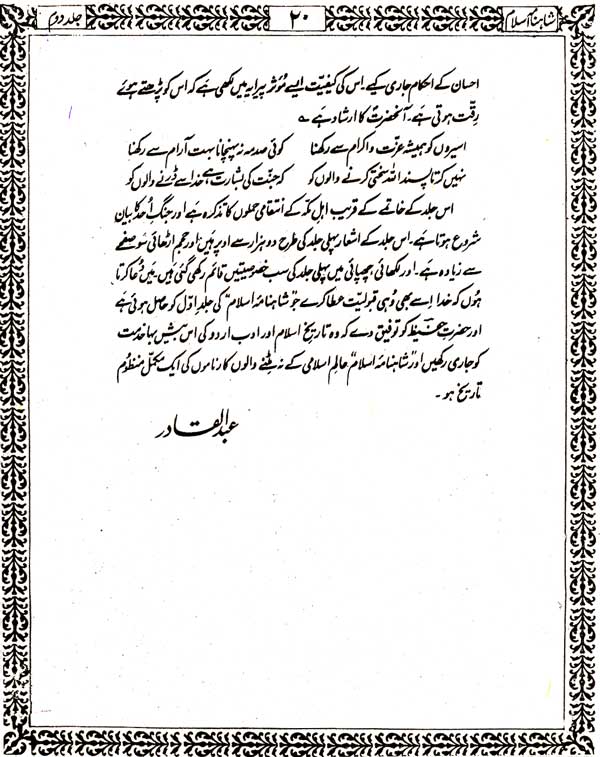 شاہنامۂ اسلام
۲۰
جلد دوم
احسان کے احکام جاری کیے۔ اس کی کیفیّت ایسے مؤثر پیرایہ میں لکھی ہے کہ اس کو پڑھتے ہوئے
رقّت ہوتی ہے۔ آنحضرتؐ کا ارشاد ہے ؎
اسیروں کو ہمیشہ عزّت و اکرام سے رکھنا کوئی صدمہ نہ پہنچانا بہت آرام سے رکھنا
نہیں کرتا پسند اللہ سختی کرنے والوں کو کہ جنّت کی بشارت ہے خدا سے ڈرنے والوں کو
اس جلد کے خاتمے کے قریب اہلِ مکّہ کے انتقامی حملوں کا تذکرہ ہے اور جنگِ اُحد کا بیان
شروع ہوتا ہے۔ اس جلد کے اشعار پہلی جلد کی طرح دو ہزار سے اوپر ہیں اور حجم اڑھائی سو صفحے
سے زیادہ ہے۔ اور لکھائی چھپائی میں پہلی جلد کی سب خصوصیتیں قائم رکھی گئی ہیں۔ میں دُعا کرتا
ہُوں کہ خدا اِسے بھی وُہی قبولیّت عطا کرے جو ”شاہنامۂ اسلام“ کی جلدِ اوّل کو حاصل ہوئی ہے
اور حضرتِ حفیظ کو توفیق دے کہ وہ تاریخِ اسلام اور ادبِ اردو کی اس بیش بہا خدمت
کو جاری رکھیں اور ”شاہنامۂ اسلام“ عالمِ اسلامی کے نہ مٹنے والوں کارناموں کی ایک مکمّل منظُوم
تاریخ ہو۔
عبدالقادر